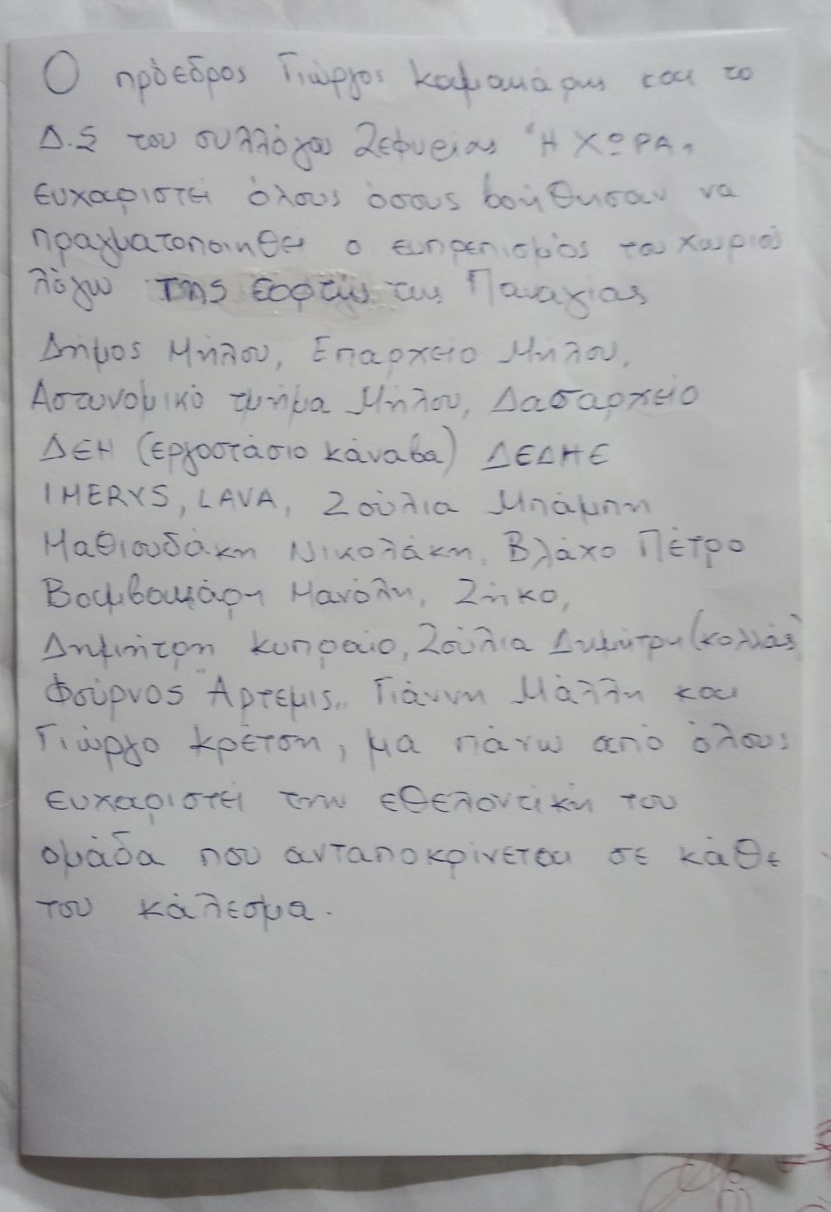 Ο πρόεδρος Γιώργος Καμακάρης και το
Δ.Σ του συλλόγου Ζεφυρίας "Η ΧΩΡΑ"
ευχαριστεί όλους όσους βοήθησαν να
πραγματοποιηθεί ο ευπρεπισμός του χωριού
λόγω της εορτής της Παναγίας
Δήμος Μήλου, Επαρχείο Μήλου,
Αστυνομικό τμήμα Μήλου, Δασαρχείο
ΔΕΗ (εργοστάσιο κάναβα) ΔΕΔΗΕ
IMERYS, LAVA, Ζούλια Μπάμπη
Μαθιουδάκη Νικολάκη, Βλάχο Πέτρο
Βαμβακάρη Μανόλη, Ζήκο,
Δημήτρη κυπραίο, Ζούλια Δημήτρη (κολλάς)
Φούρνος "Άρτεμις" Γιάννη Μάλλη και
Γιώργο κρέτση, μα πάνω από όλους
ευχαριστεί την εθελοντική του
ομάδα που ανταποκρίνεται σε κάθε
του κάλεσμα.